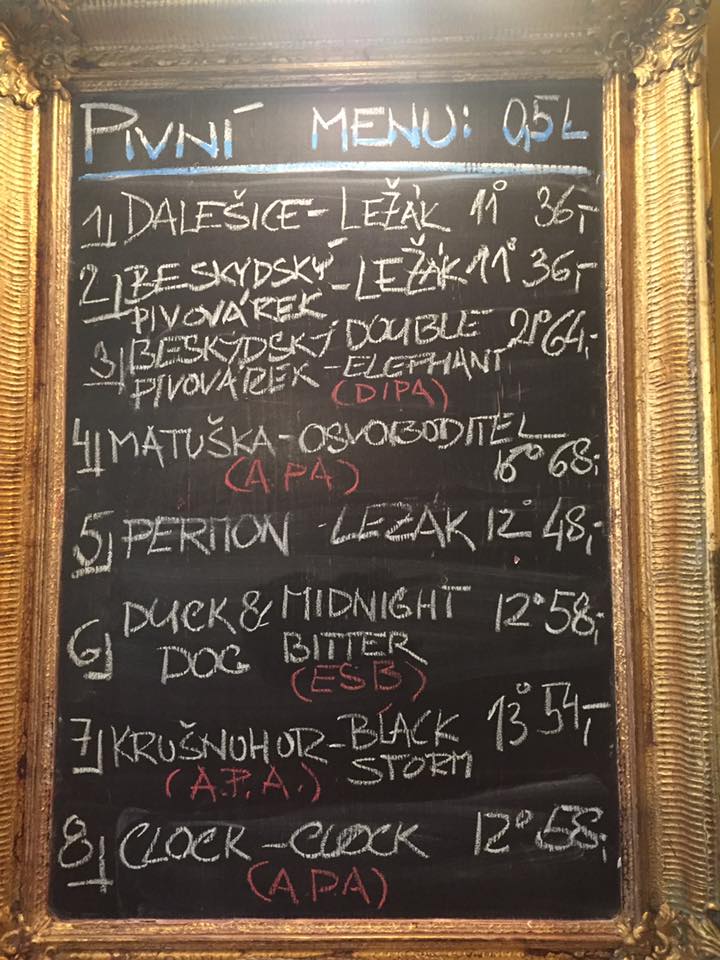 PIVNÍ MENU: 0,5L
1) DALEŠICE - LEŽÁK 11° 36,-
2) BESKYDSKÝ - LEŽÁK 11° 36,-
PIVOVÁREK
3) BESKYDSKÝ DOUBLE 21° 64,-
PIVOVÁREK - ELEPHANT
(DIPA)
4) MATUŠKA - OSVOBODITEL
16° 68,-
(A.PA)
5) PERMON - LEŽÁK 12° 48,-
6) DUCK & MIDNIGHT 12° 58,-
DOG BITTER
(ESB)
7) KRUŠNOHOR - BLACK 13° 54,-
STORM
(A.P.A.)
8) CLOCK - CLOCK 12° 58,-
(APA)